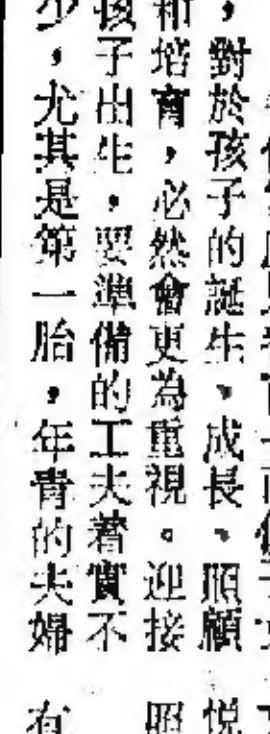 ，對於孩子的誕生、成長、照顧
和培育，必然會更為重視。迎接
孩子出生，要準備的工夫著實不
少，尤其是第一胎，年青的夫婦
悦
照
有